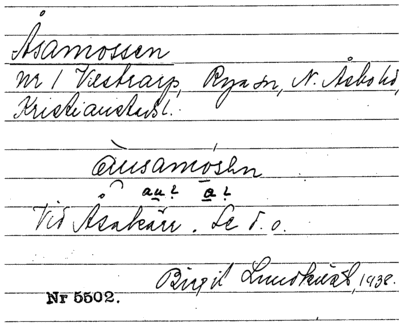 Åsamossen
nr 1 Västrarp, Rya sn, N. Åsbo hd,
Kristianstads l.
àusamósen
au? a?
Vid Åsakärr. Se d. o.
Birgit Lundkvist, 1938.
Nr 5502.